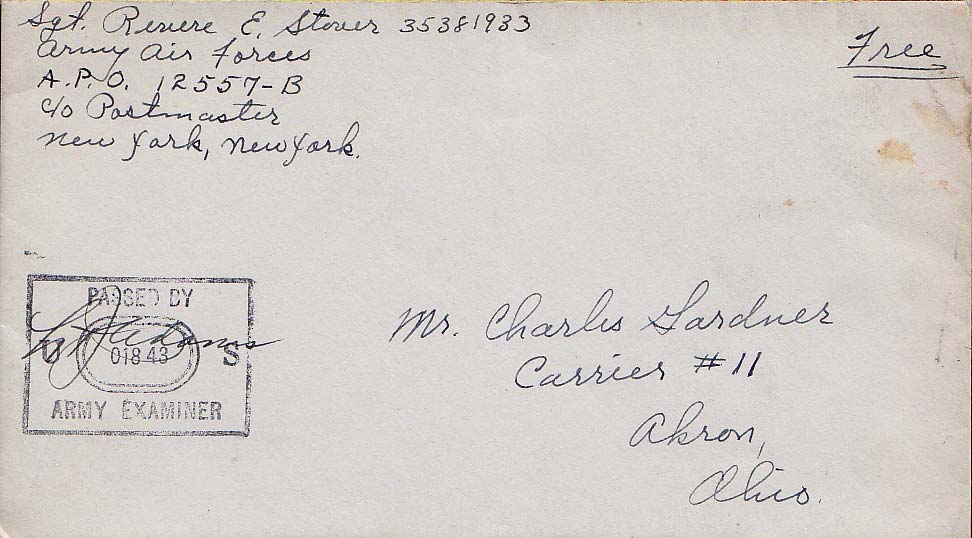 Sgt. Revere E. Stover 35381933
Army Air Forces
A.P.O. 12557-B
c/o Postmaster
New York, New York.
Free
PASSED BY
U 01843 S
ARMY EXAMINER
Mr. Charles Gardner
Carrier #11
Akron,
Ohio.